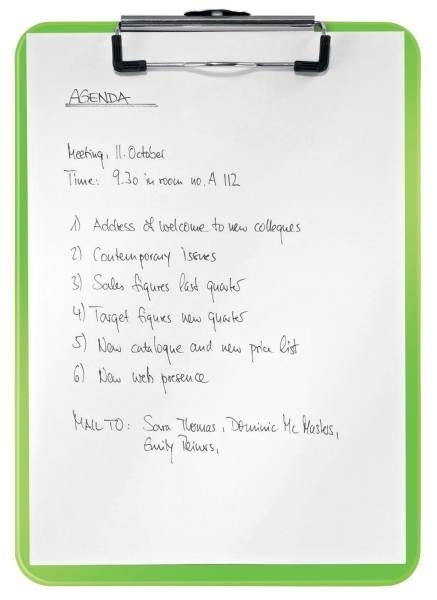 AGENDA
Meeting, 11. October
Time: 9.30 in room no. A 112
1) Address of welcome to new colleques
2) Contemporary Issues
3) Sales figures last quarter
4) Target figures new quarter
5) New catalogue and new price list
6) New web presence
MAIL TO: Sara Thomas, Dominic Mc Masters,
Emily